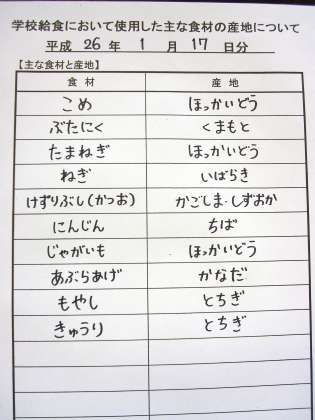 学校給食において使用した主な食材の産地について
平成 26 年 1 月 17 日分
【主な食材と産地】
食材 産地
こめ ほっかいどう
ぶたにく くまもと
たまねぎ ほっかいどう
ねぎ いばらき
けずりぶし(かつお) かごしま・しずおか
にんじん ちば
じゃがいも ほっかいどう
あぶらあげ かなだ
もやし とちぎ
きゅうり とちぎ